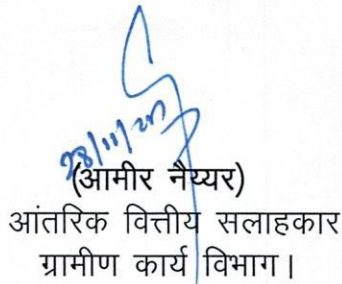 28/11/20
(आमीर नैय्यर)
आंतरिक वित्तीय सलाहकार
ग्रामीण कार्य विभाग।